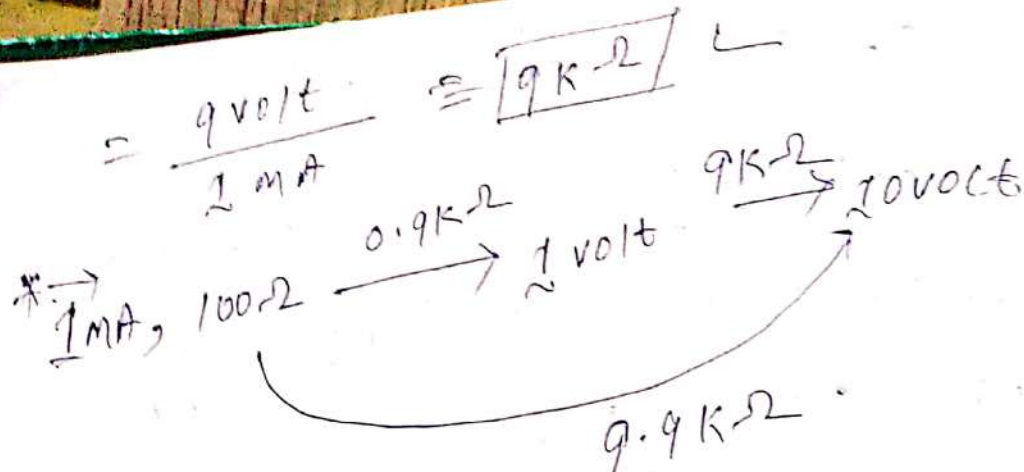 = 9 volt / 1 mA = 9KΩ
*→ 1MA, 100Ω 0.9KΩ → 1 volt 9KΩ → 10 volt
9.9KΩ.